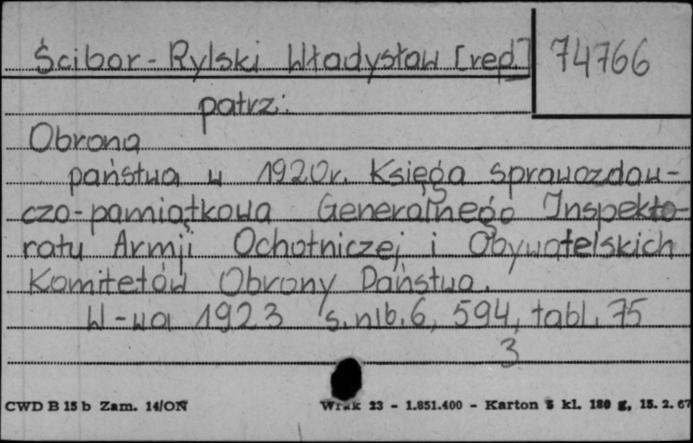 Ścibor-Rylski Władysław [red] 74766
patrz:
Obrona
państwa w 1920r. Księga sprawozdaw-
czo-pamiątkowa Generalnego Inspekto-
ratu Armji Ochotniczej i Obywatelskich
Komitetów Obrony Państwa.
W-wa 1923 s.nlb.6, 594, tabl. 75
3
CWD B 15 b Zam. 14/ON 23 - 1.851.400 - Karton kl. 180 g, 15. 2. 67